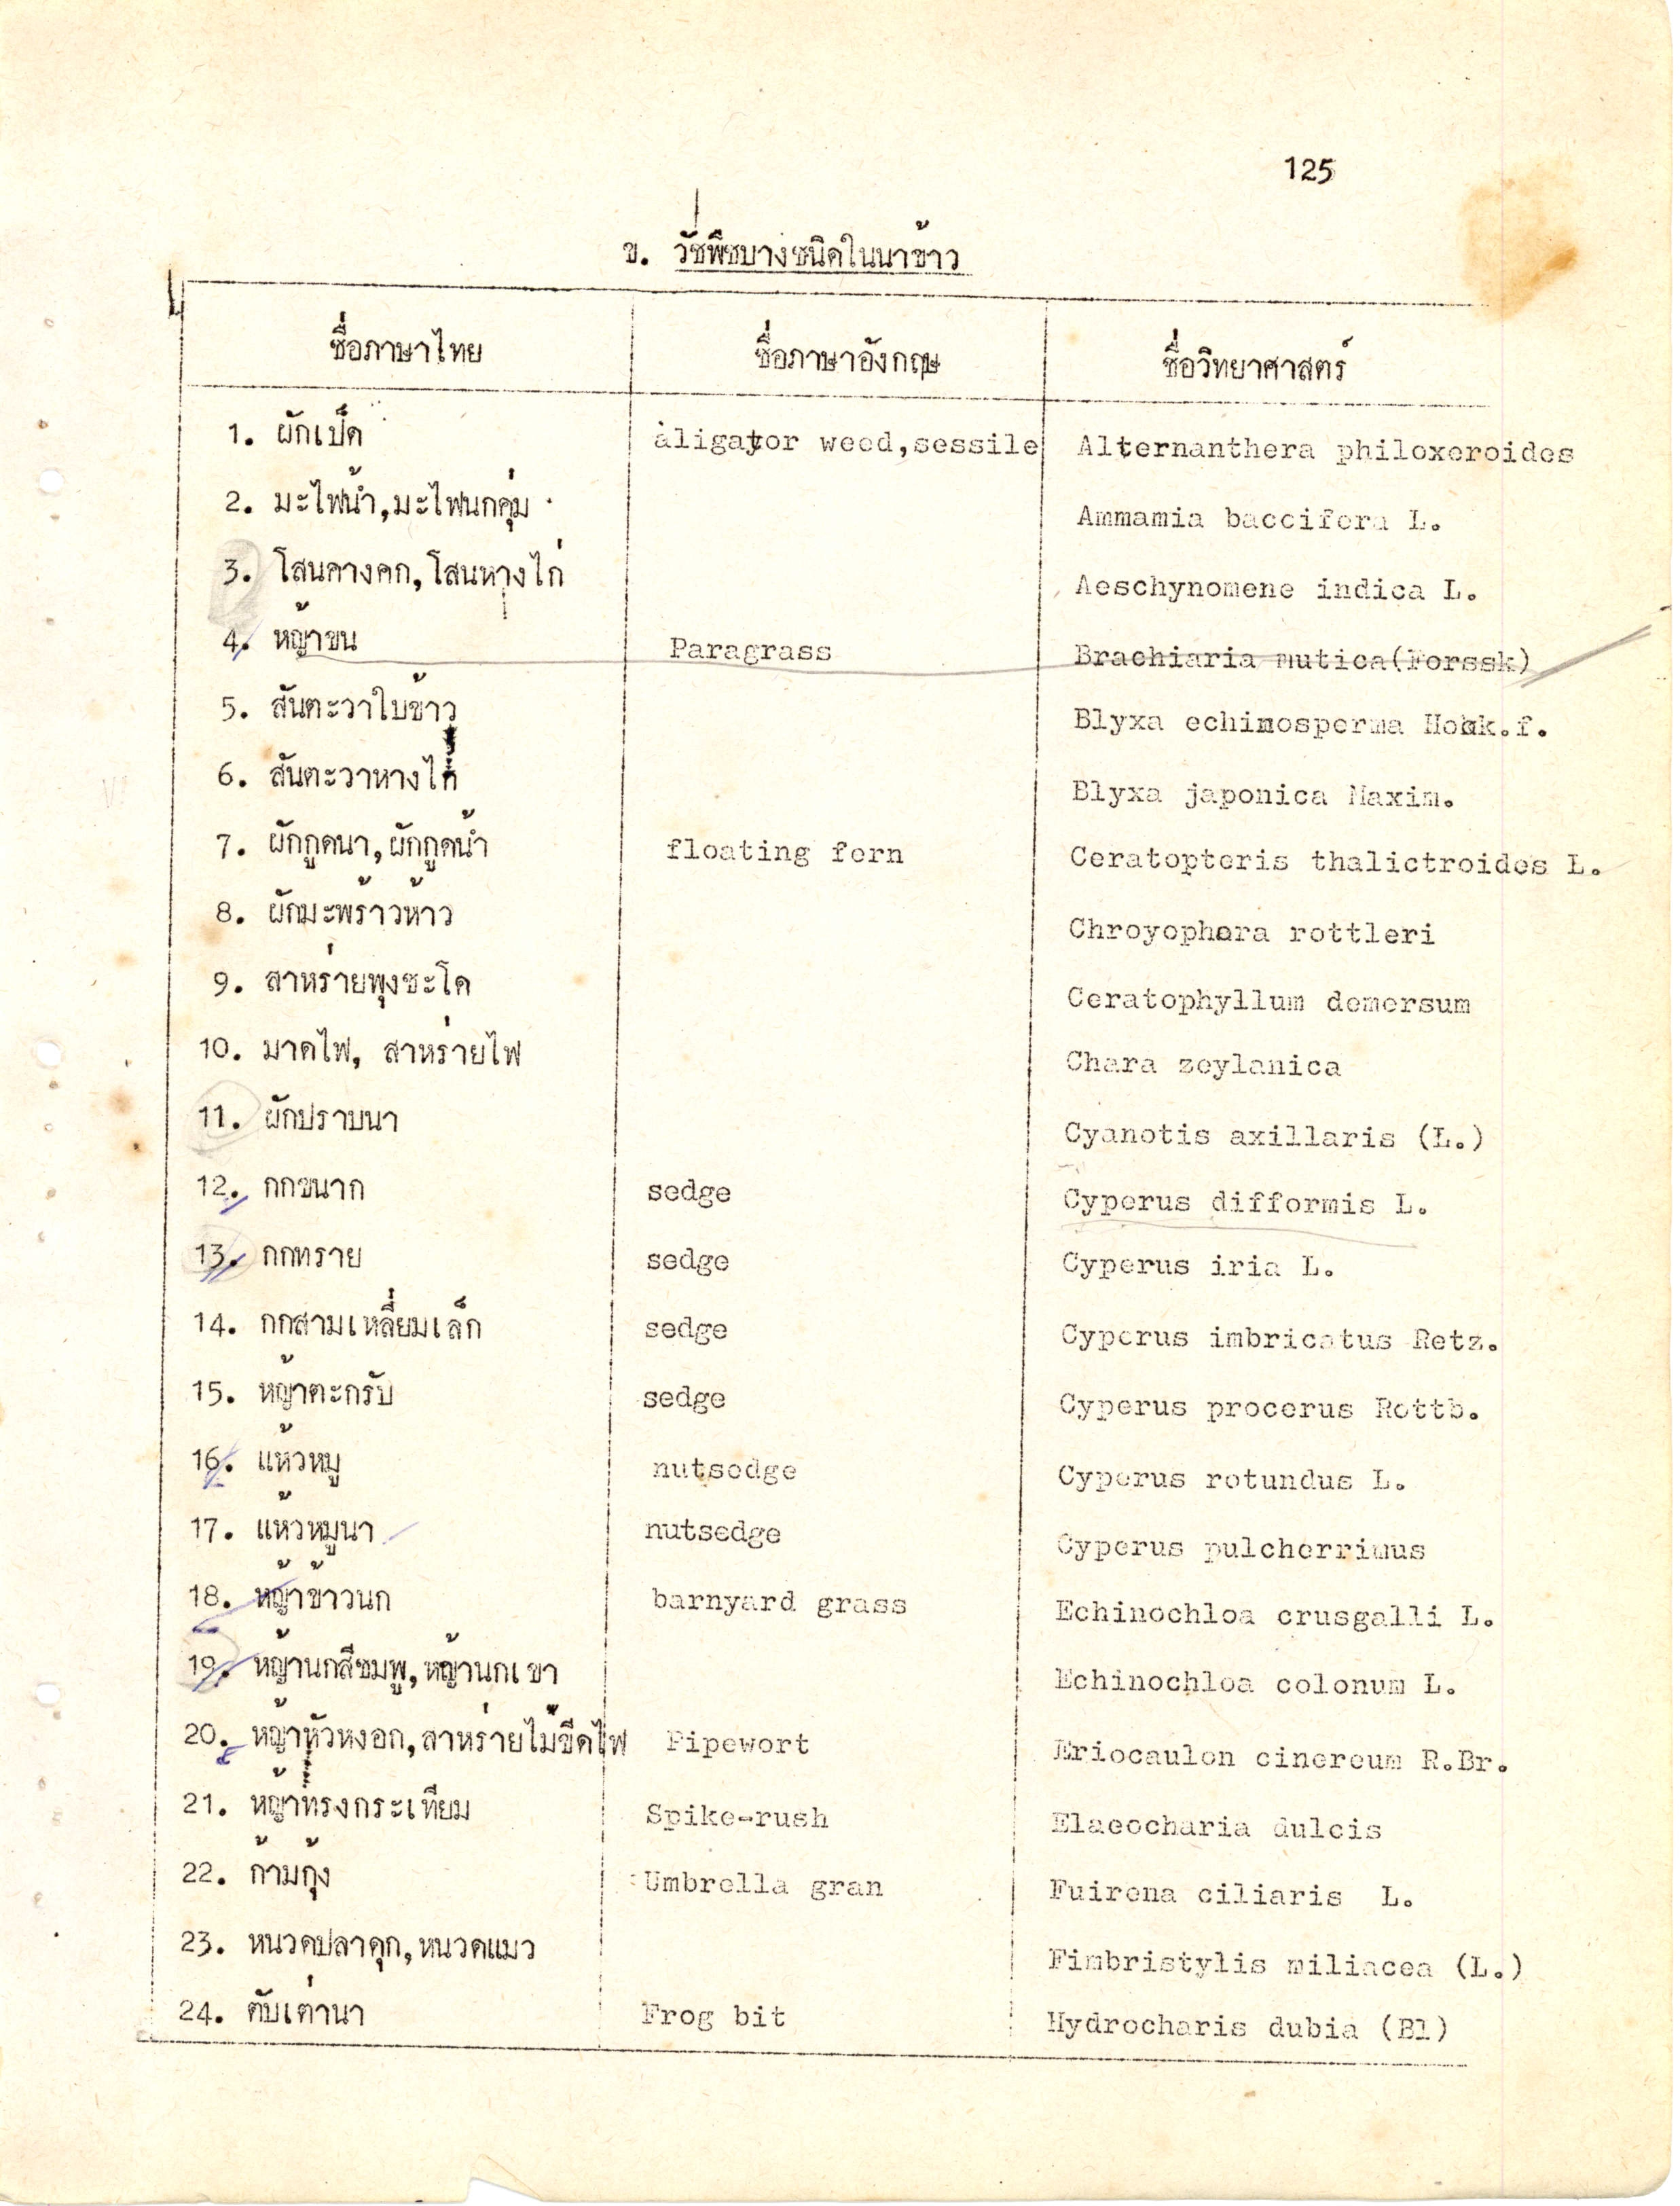 125
ข. วัชพืชบางชนิดในนาข้าว
ชื่อภาษาไทย ชื่อภาษาอังกฤษ ชื่อวิทยาศาสตร์
1. ผักเป็ด aligator weed,sessile Alternanthera philoxeroides
2. มะไฟน้ำ,มะไฟนกคุ่ม Ammamia baccifera L.
3. โสนคางคก,โสนหางไก่ Aeschynomene indica L.
4. หญ้าขน Paragrass Brachiaria mutica(Forssk)
5. สันตะวาใบข้าว Blyxa echinosperma Hook.f.
6. สันตะวาหางไก่ Blyxa japonica Maxim.
7. ผักกูดนา,ผักกูดน้ำ floating fern Ceratopteris thalictroides L.
8. ผักมะพร้าวห้าว Chroyophora rottleri
9. สาหร่ายพุงชะโด Ceratophyllum demersum
10. มาดไฟ, สาหร่ายไฟ Chara zeylanica
11. ผักปราบนา Cyanotis axillaris (L.)
12. กกขนาก sedge Cyperus difformis L.
13. กกทราย sedge Cyperus iria L.
14. กกสามเหลี่ยมเล็ก sedge Cyperus imbricatus Retz.
15. หญ้าตะกรับ sedge Cyperus procerus Rottb.
16. แห้วหมู nutsedge Cyperus rotundus L.
17. แห้วหมูนา nutsedge Cyperus pulcherrimus
18. หญ้าข้าวนก barnyard grass Echinochloa crusgalli L.
19. หญ้านกสีชมพู,หญ้านกเขา Echinochloa colonum L.
20. หญ้าหัวหงอก,สาหร่ายไม้ขีดไฟ Pipewort Eriocaulon cinereum R.Br.
21. หญ้าทรงกระเทียม Spike-rush Elaeocharia dulcis
22. ก้ามกุ้ง Umbrella gran Fuirena ciliaris L.
23. หนวดปลาดุก,หนวดแมว Fimbristylis miliacea (L.)
24. ตับเต่านา Frog bit Hydrocharis dubia (Bl)